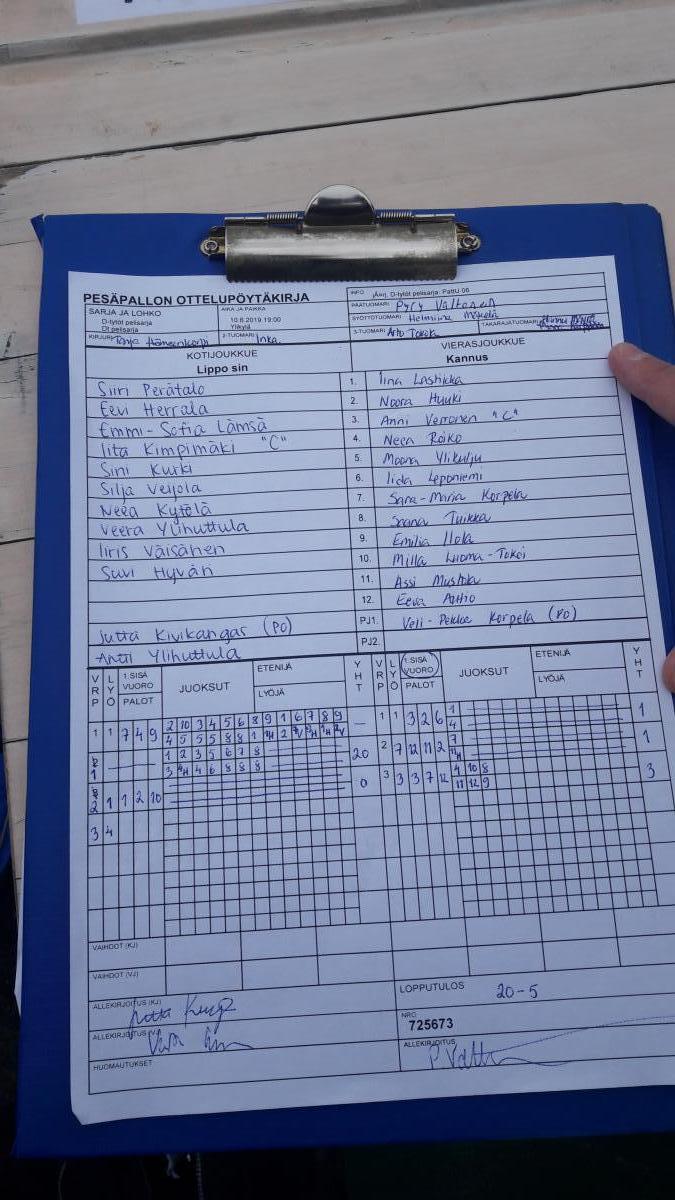 PESÄPALLON OTTELUPÖYTÄKIRJA
INFO Änrj. D-tytöt pelisarja: Pattu 06
SARJA JA LOHKO
D-tytöt pelisarja
Dt pelisarja
AIKA JA PAIKKA
10.6.2019 19:00
Ylikylä
PÄÄTUOMARI Pyry Valtonen
SYÖTTÖTUOMARI Helmiina
KIRJURI Tanja Hämeenkorpi
2-TUOMARI Inka
3-TUOMARI Arto Tokola
TAKARAJATUOMARI
KOTIJOUKKUE
Lippo sin
VIERASJOUKKUE
Kannus
Siiri Perätalo 1. Iina Lastikka
Eevi Herrala 2. Noora Huuki
Emmi-Sofia Lämsä 3. Anni Verronen "C"
Iita Kimpimäki "C" 4. Neea Roiko
Sini Kurki 5. Moona Ylikulju
Silja Veijola 6. Iida Leponiemi
Neea Kytölä 7. Sara-Maria Korpela
Veera Ylihuttula 8. Saana Tuikka
Iiris Väisänen 9. Emilia Ilola
Suvi Hyvän 10. Milla Luoma-Tokoi
11. Assi Mustola
12. Eeva Aatio
Jutta Kivikangas (PO) PJ1. Veli-Pekka Korpela (PO)
Antti Ylihuttula PJ2.
VRP LYÖ 1.SISÄ VUORO PALOT JUOKSUT ETENIJÄ LYÖJÄ YHT VRP LYÖ 1.SISÄ VUORO PALOT JUOKSUT ETENIJÄ LYÖJÄ YHT
1 1 7 4 9 2 10 3 4 5 6 8 9 1 6 7 8 9 — 1 1 3 2 6 1 1
4 5 5 5 8 8 1 4
1 — 1 2 3 5 6 7 8 20 2 7 12 11 2 7 1
3 4 6 8 8 8
2 1 1 2 10 0 3 3 3 7 12 4 10 8 3
11 12 9
3 4
VAIHDOT (KJ)
VAIHDOT (VJ)
ALLEKIRJOITUS (KJ)
LOPPUTULOS 20-5
ALLEKIRJOITUS (VJ)
NRO
725673
HUOMAUTUKSET
ALLEKIRJOITUS